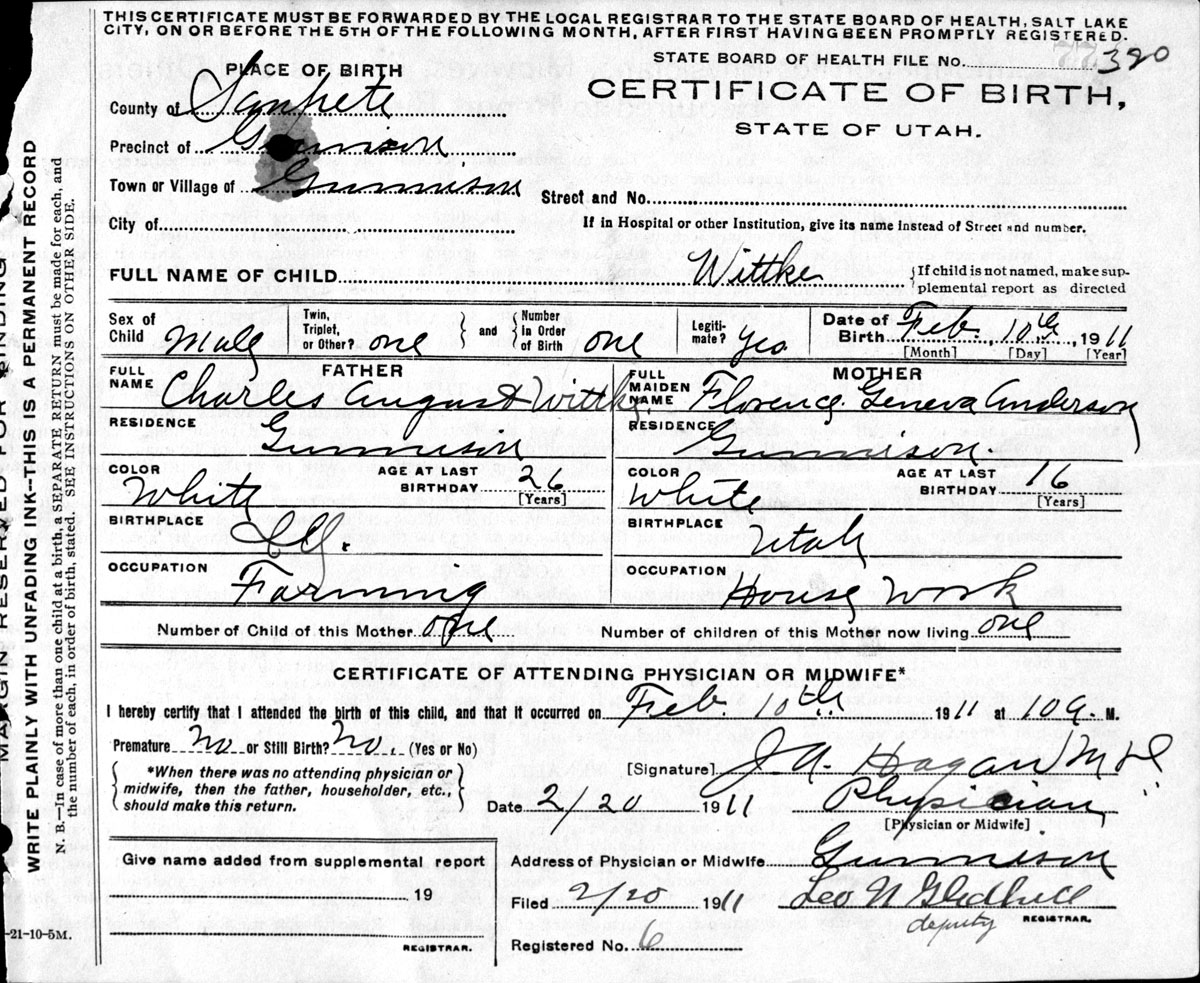 THIS CERTIFICATE MUST BE FORWARDED BY THE LOCAL REGISTRAR TO THE STATE BOARD OF HEALTH, SALT LAKE
CITY, ON OR BEFORE THE 5TH OF THE FOLLOWING MONTH, AFTER FIRST HAVING BEEN PROMPTLY REGISTERED.
PLACE OF BIRTH
STATE BOARD OF HEALTH FILE No. 320
County of Sanpete
CERTIFICATE OF BIRTH,
STATE OF UTAH.
Precinct of Gunnison
Town or Village of Gunnison
Street and No.
City of
If in Hospital or other Institution, give its name instead of Street and number.
FULL NAME OF CHILD Wittke
{If child is not named, make sup-
plemental report as directed
Sex of Child Male
Twin, Triplet, or Other? one
and
Number In Order of Birth one
Legiti-mate? Yes
Date of Birth Feb. 10th, 1911
[Month] [Day] [Year]
FATHER
FULL NAME Charles August Wittke
MOTHER
FULL MAIDEN NAME Florence Geneva Anderson
RESIDENCE Gunnison
RESIDENCE Gunnison.
COLOR White AGE AT LAST BIRTHDAY 26 [Years]
COLOR White AGE AT LAST BIRTHDAY 16 [Years]
BIRTHPLACE Ill.
BIRTHPLACE Utah
OCCUPATION Farming
OCCUPATION House Work
Number of Child of this Mother one
Number of children of this Mother now living one
CERTIFICATE OF ATTENDING PHYSICIAN OR MIDWIFE*
I hereby certify that I attended the birth of this child, and that it occurred on Feb. 10th 1911 at 10 a. M.
Premature No or Still Birth? No. (Yes or No)
*When there was no attending physician or
midwife, then the father, householder, etc.,
should make this return.
[Signature] J.A. Hagan M.d.
Date 2/20 1911 Physician
[Physician or Midwife]
Give name added from supplemental report
19
REGISTRAR.
Address of Physician or Midwife Gunnison
Filed 2/20 1911 Leo N Gledhill
deputy REGISTRAR.
Registered No. 6
-21-10-5M.
MARGIN RESERVED FOR BINDING
WRITE PLAINLY WITH UNFADING INK--THIS IS A PERMANENT RECORD
N. B.—In case of more than one child at a birth, a SEPARATE RETURN must be made for each, and
the number of each, in order of birth, stated. SEE INSTRUCTIONS ON OTHER SIDE.